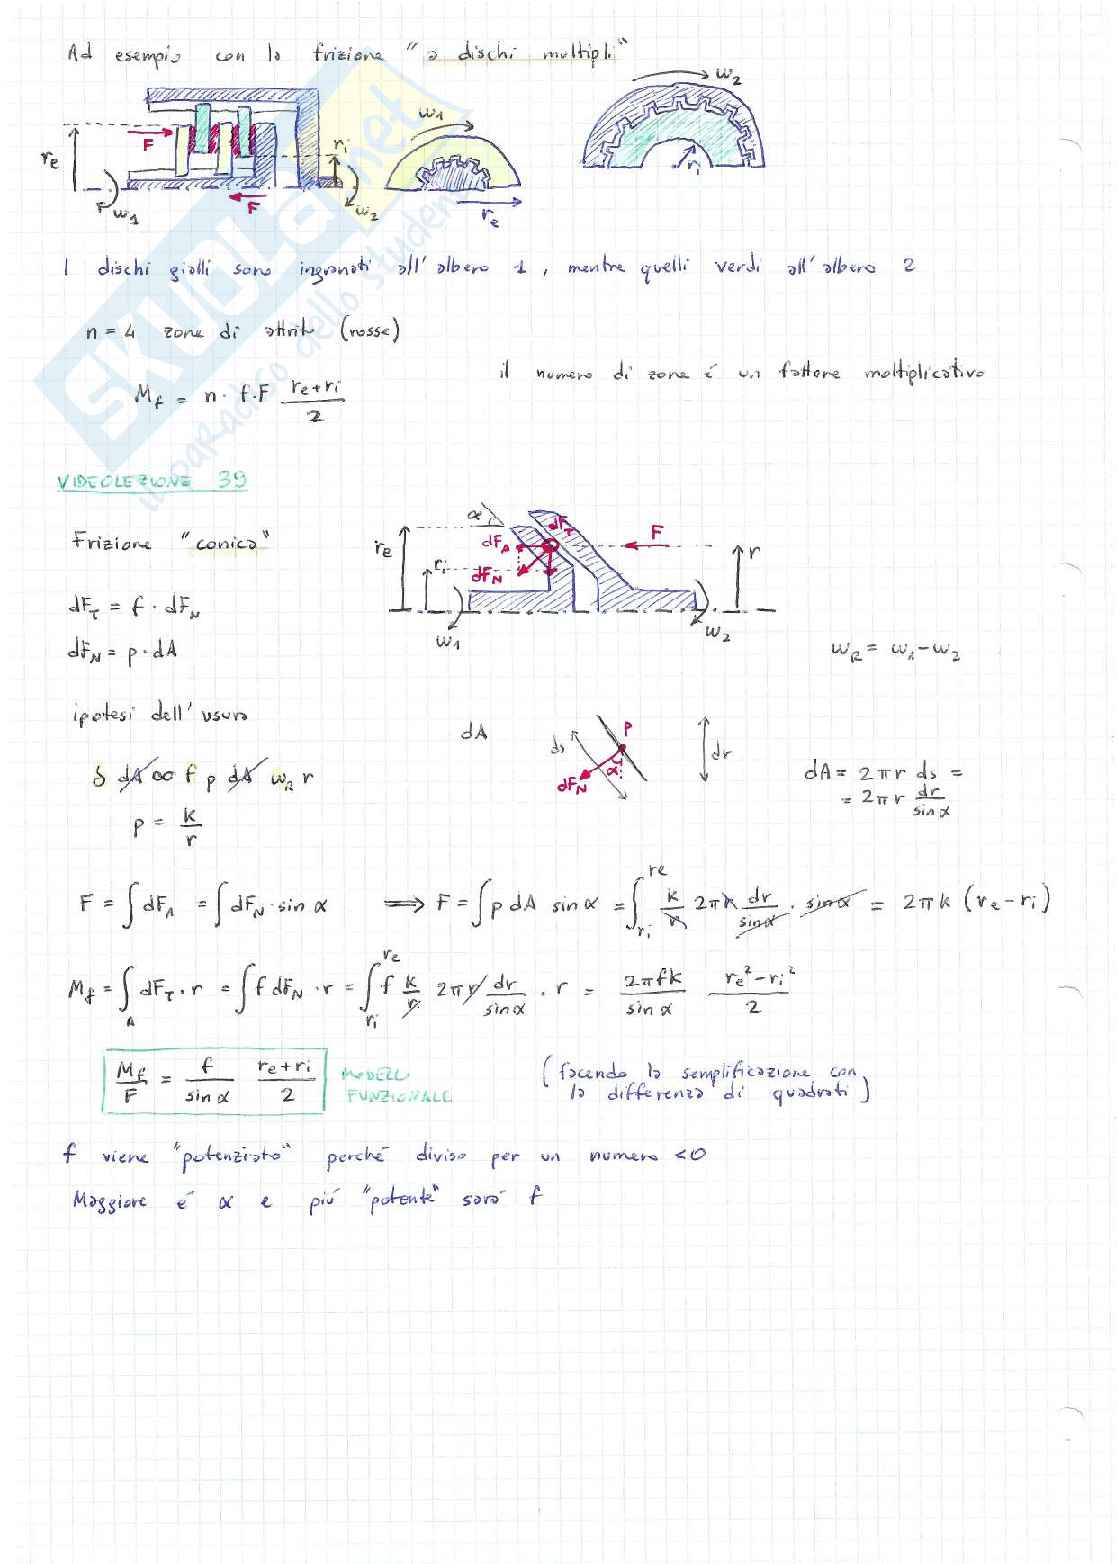 Ad esempio con la frizione "a dischi multipli"
re F ri ω1 F ω2
ω1 re
ω2 ri
I dischi gialli sono ingranati all'albero 1, mentre quelli verdi all'albero 2
n = 4 zone di attrito (rosse)
il numero di zone é un fattore moltiplicativo
Mf = n · f · F (re + ri)/2
SKUOLA.net
il paradiso dello studente
VIDEOLEZIONE 39
Frizione "conica"
α re ri dFA dFT dFN F r ω1 ω2
dFT = f · dFN
dFN = p · dA
ωR = ω1 - ω2
ipotesi dell'usura
dA ds P α dFN dr
δ dA ∝ f p dA ωR r
dA = 2πr ds =
= 2πr dr/sin α
p = k/r
F = ∫ dFA = ∫ dFN · sin α ⟹ F = ∫ p dA sin α = ∫ri^re k/r 2πr dr/sin α · sin α = 2πk (re - ri)
Mf = ∫A dFT · r = ∫ f dFN · r = ∫ri^re f k/r 2πr dr/sin α · r = 2πfk/sin α (re² - ri²)/2
Mf/F = f/sin α (re + ri)/2 MODELLO FUNZIONALE
(facendo la semplificazione con
la differenza di quadrati)
f viene "potenziato" perché diviso per un numero <0
Maggiore é α e piú "potente" sará f